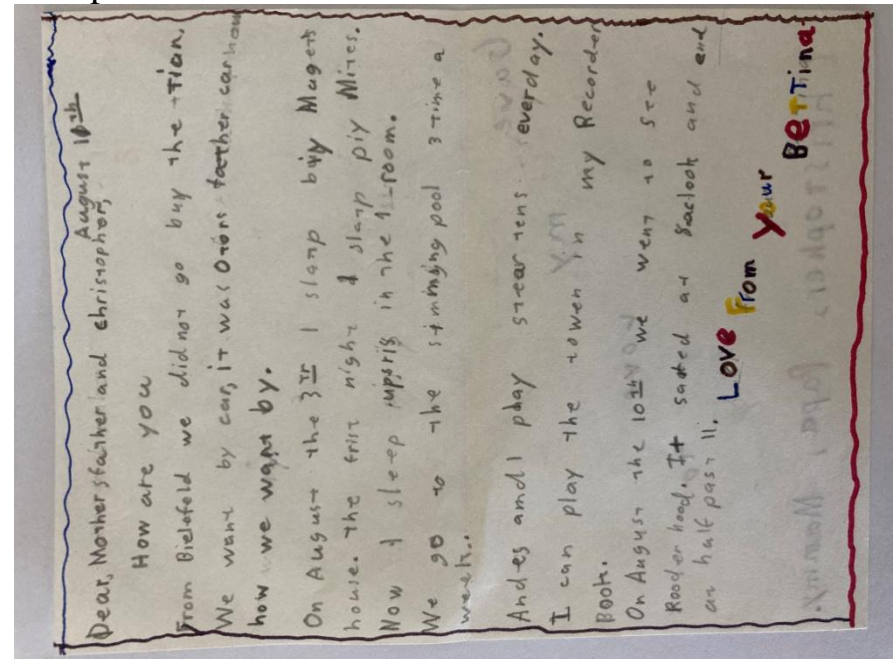 August 10th
Dear, Mother,father and christopher,
How are you
From Bielefeld we did not go buy the Tian.
We want by car, iT was Otons father car how
how we want by.
On August the 3 I slanp biy Mugets
house. the frist night I slanp piy Mites.
Now I sleep upsris in the 1 room.
We go to the simming pool 3 time a
week..
And es and I play stear tens everday.
I can play the towen in my Recorder
Book.
On August the 10th we went to see
Rooder hood. It sarted at 8aclook and end
at half past 11.
Love From your Bettina